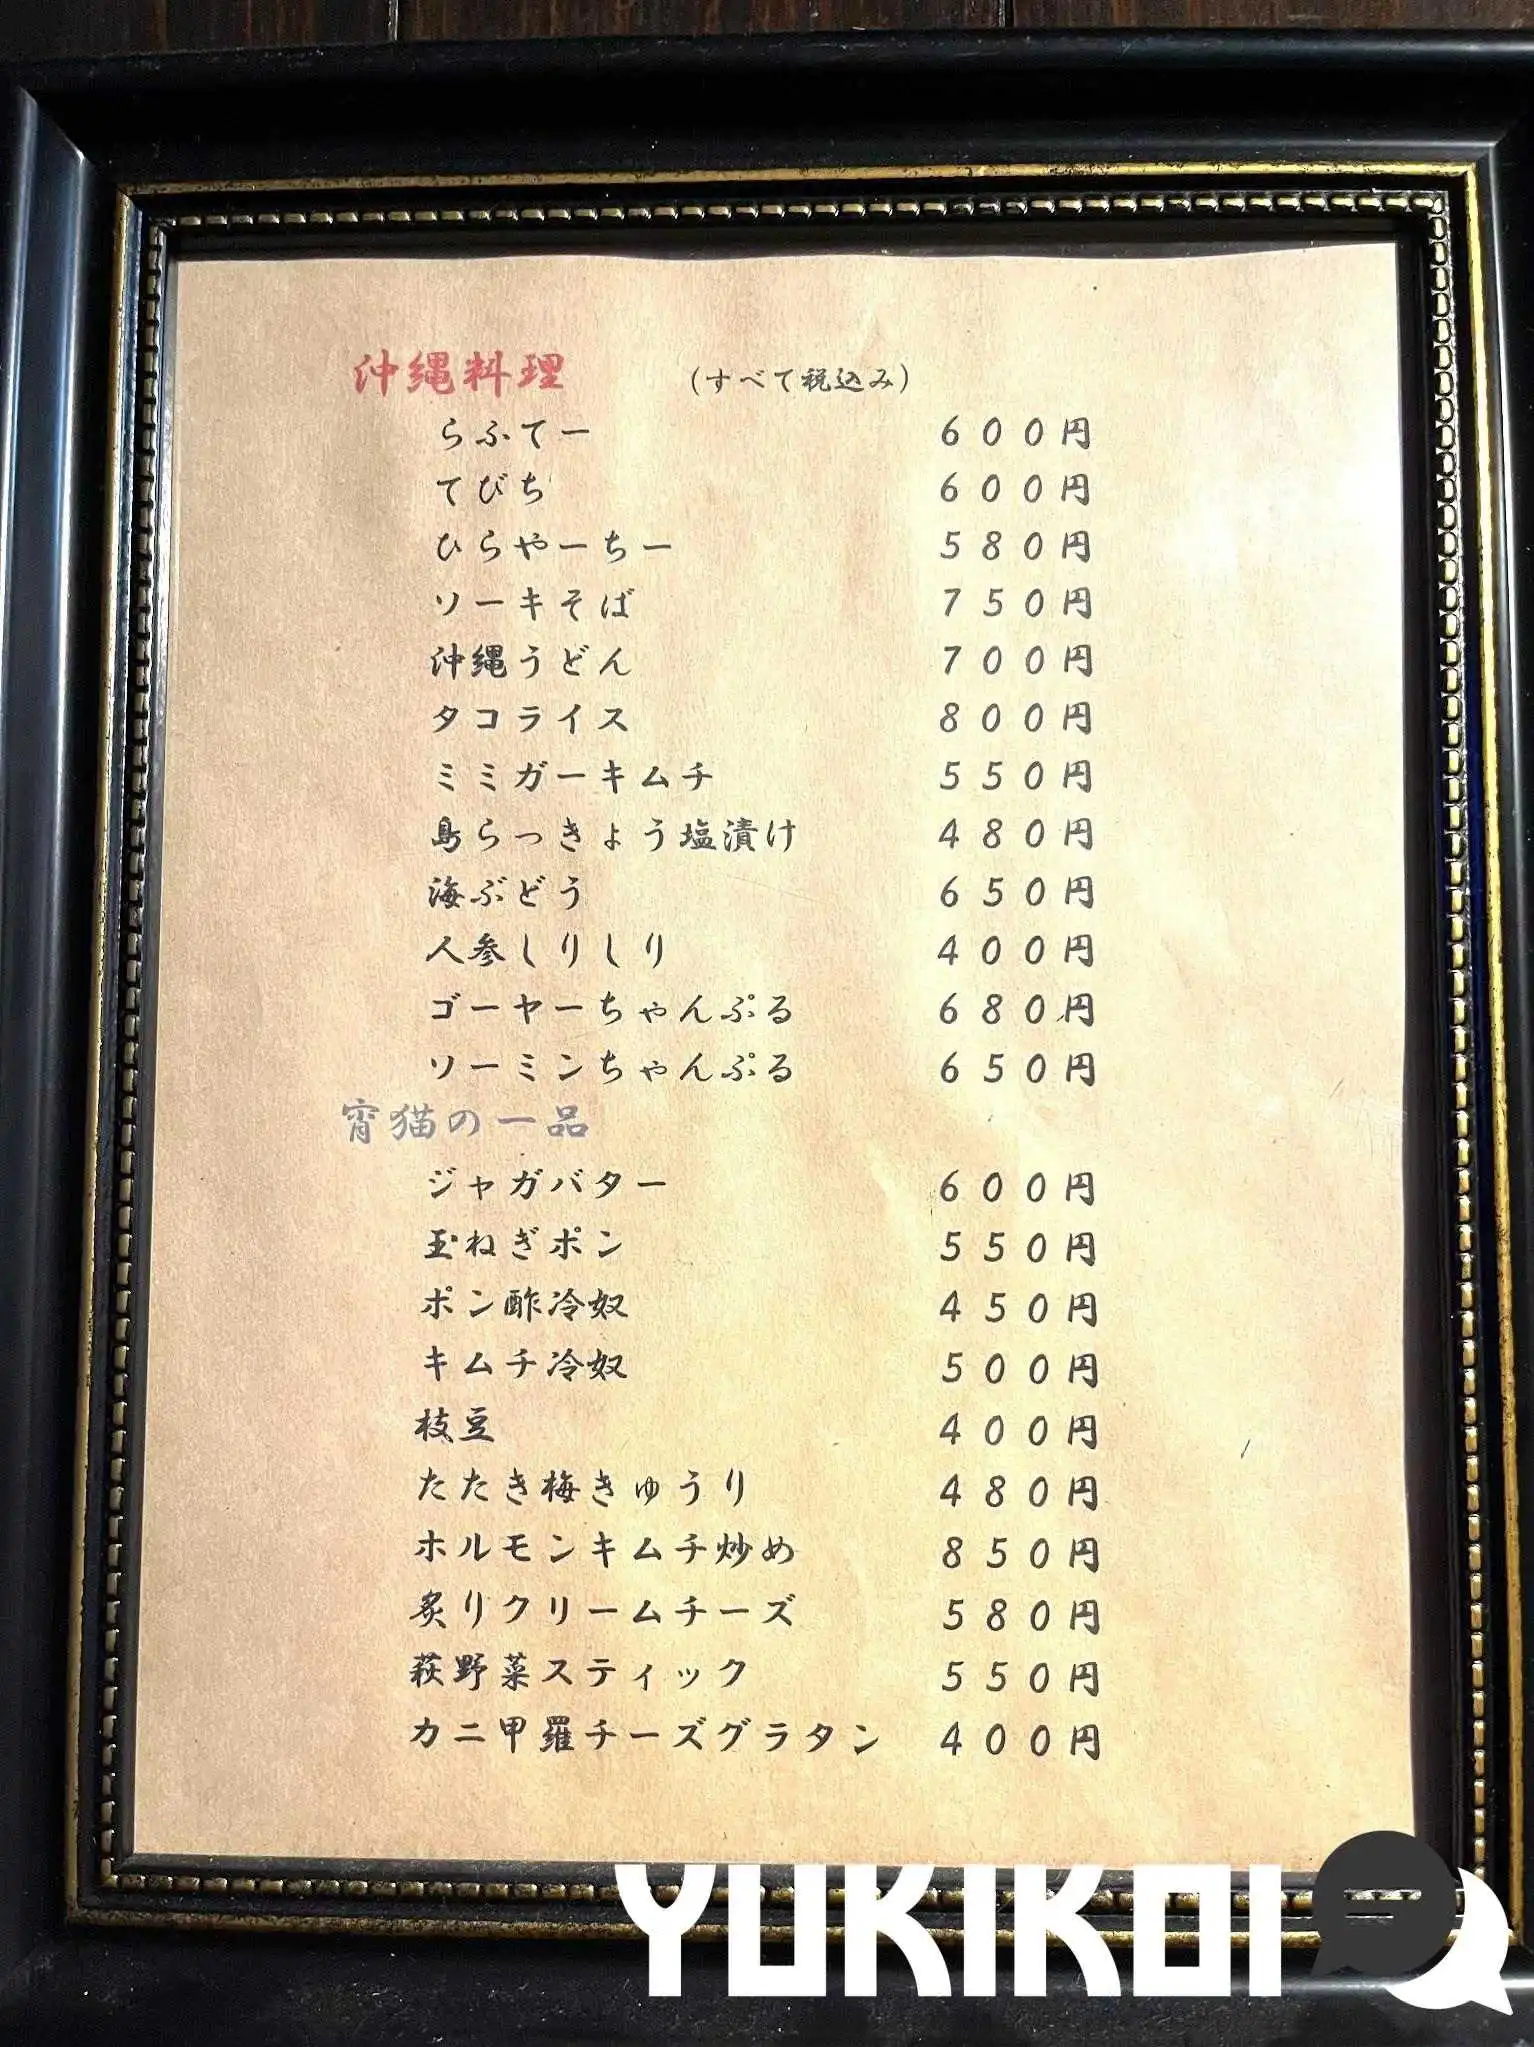 沖縄料理 (すべて税込み)
らふてー 600円
てびち 600円
ひらやーちー 580円
ソーキそば 750円
沖縄うどん 700円
タコライス 800円
ミミガーキムチ 550円
島らっきょう塩漬け 480円
海ぶどう 650円
人参しりしり 400円
ゴーヤーちゃんぷる 680円
ソーミンちゃんぷる 650円
宵猫の一品
ジャガバター 600円
玉ねぎポン 550円
ポン酢冷奴 450円
キムチ冷奴 500円
枝豆 400円
たたき梅きゅうり 480円
ホルモンキムチ炒め 850円
炙りクリームチーズ 580円
萩野菜スティック 550円
カニ甲羅チーズグラタン 400円
YUKIKOI